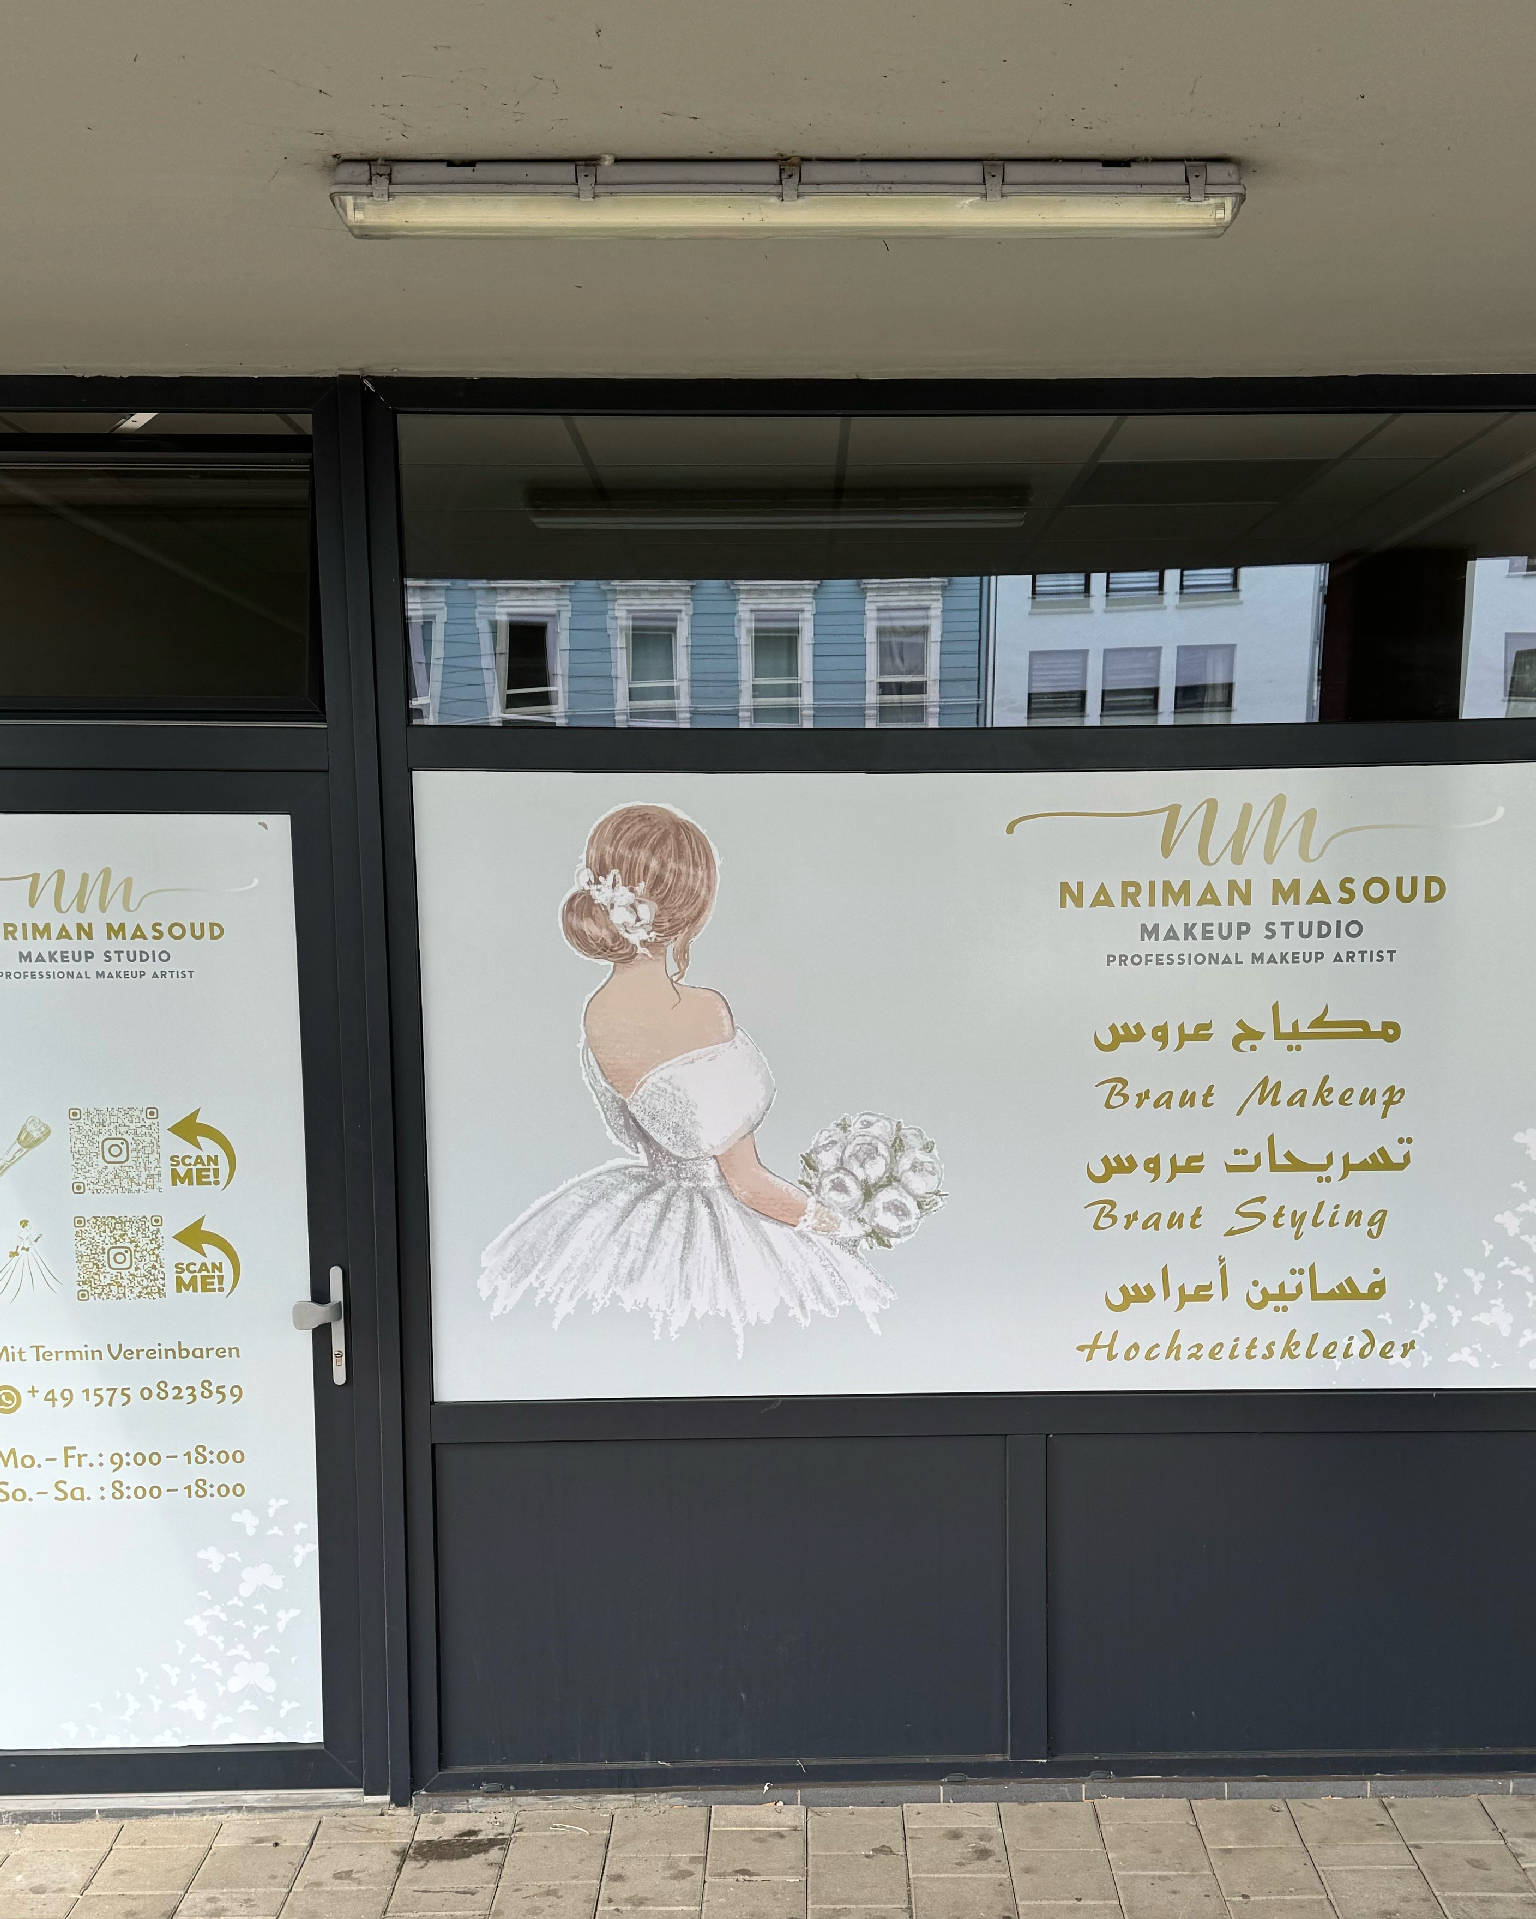 nm
RIMAN MASOUD
MAKEUP STUDIO
PROFESSIONAL MAKEUP ARTIST
SCAN
ME!
SCAN
ME!
Mit Termin Vereinbaren
+49 1575 0823859
Mo.-Fr.: 9:00-18:00
So.-Sa. : 8:00-18:00
nm
NARIMAN MASOUD
MAKEUP STUDIO
PROFESSIONAL MAKEUP ARTIST
مكياج عروس
Braut Makeup
تسريحات عروس
Braut Styling
فساتين أعراس
Hochzeitskleider